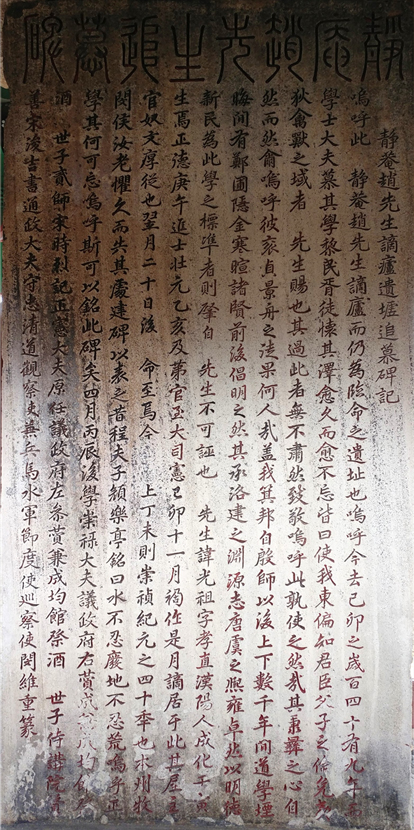 靜庵趙先生追慕碑
靜菴趙先生謫廬遺墟追慕碑記
嗚呼此 靜菴趙先生謫廬而仍爲臨命之遺址也嗚呼今去己卯之歲百四十有九年而
學士大夫慕其學黎民胥徒懷其澤愈久而愈不忘皆曰使我東偏知君臣父子之倫免夷
狄禽獸之域者 先生賜也其過此者無不肅然致敬嗚呼此孰使之然哉其秉彝之心自
然而然爾嗚呼彼袞貞景舟之徒果何人哉盖我其邦自殷師以後上下數千年間道學堙
晦間有鄭圃隱金寒暄諸賢前後倡明之然其承洛建之淵源志唐虞之熙雍卓然以明德
新民爲此學之標準者則肇自 先生不可誣也 先生諱光祖字孝直漢陽人成化壬寅
生焉正德庚午進士壯元乙亥及第官至大司憲己卯十一月禍作是月謫居于此其屋主
官奴文厚從也翌月二十日後 命至焉今 上丁未則崇禎紀元之四十年也 州牧
閔侯汝老懼久而失其處建碑以表之昔程夫子顔樂亭銘曰水不忍廢地不忍荒嗚呼正
學其何可忘嗚呼斯可以銘此碑矣四月丙辰後學崇祿大夫議政府右贊成 成均館
酒 世子貳師宋時烈記正憲大夫原任議政府左參贊兼成均館祭酒 世子侍講院贊
善宋浚吉書通政大夫守忠清道觀察使兼兵馬水軍節度使巡察使閔維重篆